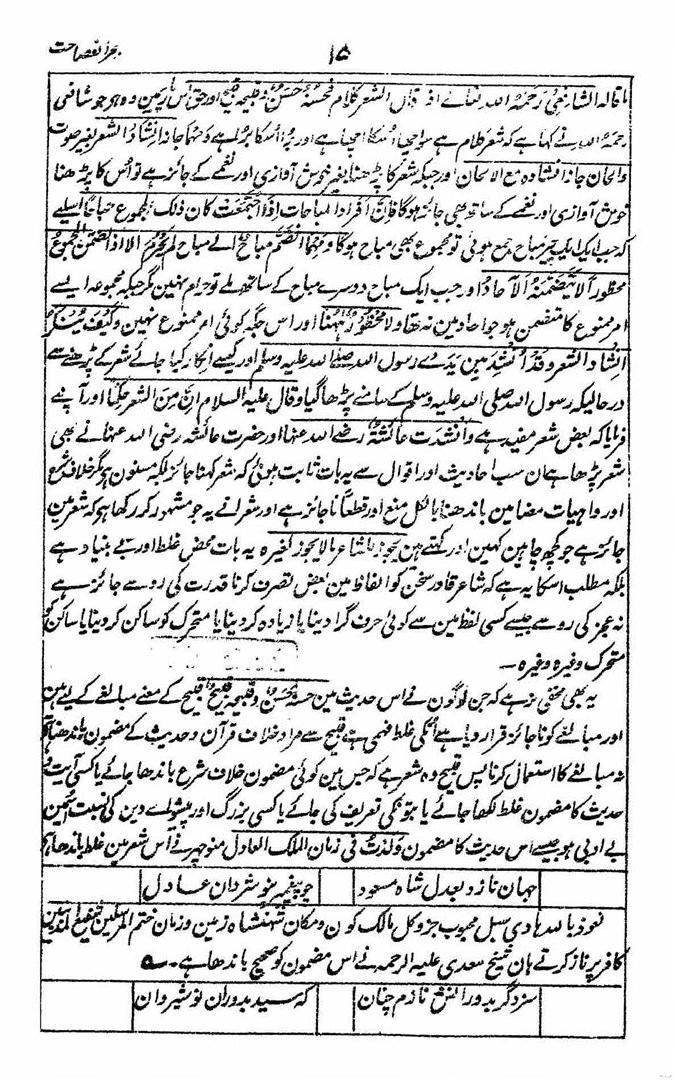 بحر الفصاحت
۱۵
ما قاله الشافعی رحمه الله تعالے اذ قال الشعر کلام فحسنه حسن و قبیحه قبیح اور حق اس باب مین وہ ہی جو شافعی
رحمہ اللہ نے کہا ہے کہ شعر کلام ہے سو اچھا اُسکا اچھا ہے اور بُرا اُسکا بُرا ہے ومهما جاز انشاد الشعر بغیر صوت
والحان جاز انشاده مع الالحان اور جبکہ شعر کا پڑھنا بغیر خوش آوازی اور نغمے کے جائز ہے تو اُس کا پڑھنا
خوش آوازی اور نغمے کے ساتھ بھی جائز ہوگا فان افراد المباحات اذا اجتمعت کان ذلک المجموع مباحا اسلیے
کہ جب ایک ایک چیز مباح جمع ہوئی تو مجموع بھی مباح ہوگا ومهما انضم مباح الی مباح لم یحرم الا اذا تضمن المجموع
محظورا لا یتضمنه الآحاد اور جب ایک مباح دوسرے مباح کے ساتھ ملے تو حرام نہین مگر جبکہ مجموعہ ایسے
امر ممنوع کا متضمن ہو جو احاد مین نہ تھا ولا محظور ههنا اور اس جگہ کوئی امر ممنوع نہین وکیف ینکر
انشاد الشعر وقد انشد بین یدے رسول الله صلے الله علیه وسلم اور کیسے انکار کیا جائے شعر کے پڑھنے سے
درحالیکہ رسول اللہ صلی اللہ علیہ وسلم کے سامنے پڑھا گیا وقال علیه السلام ان من الشعر حکما اور آپنے
فرمایا کہ بعض شعر مفید ہے وانشدت عائشة رضے الله عنها اور حضرت عائشہ رضی اللہ عنہا نے بھی
شعر پڑھا ہے ان سب احادیث اور اقوال سے یہ بات ثابت ہوئی کہ شعر کہنا جائز بلکہ مسنون ہی مگر خلاف شرع
اور واہیات مضامین باندھنا بالکل منع اور قطعاً ناجائز ہے اور شعرا نے یہ جو مشہور کر رکھا ہی کہ شعر مین
جائز ہے جو کچھ چاہین کہین اور کہتے ہین یجوز للشاعر ما لا یجوز لغیره یہ بات محض غلط اور بے بنیاد ہے
بلکہ مطلب اسکا یہ ہے کہ شاعر قادر سخن کو الفاظ مین بعض تصرف کرنا قدرت کی رو سے جائز ہے
نہ عجز کی رو سے جیسے کسی لفظ مین سے کوئی حرف گرا دینا یا زیادہ کر دینا یا متحرک کو ساکن کر دینا یا ساکن کو
متحرک وغیرہ وغیرہ ـ
یہ بھی مخفی نرہے کہ جن لوگون نے اس حدیث مین حسنه حسن و قبیحه قبیح قبیح کے معنے مبالغے کے لیے ہین
اور مبالغے کو ناجائز قرار دیا ہے اُنکی غلط فہمی ہے قبیح سے مراد خلاف قرآن و حدیث کے مضمون باندھنا ہی
نہ مبالغے کا استعمال کرنا پس قبیح وہ شعر ہے کہ جس مین کوئی مضمون خلاف شرع باندھا جائے یا کسی آیت
حدیث کا مضمون غلط لکھا جائے یا بتونکی تعریف کی جائے یا کسی بزرگ اور پیشواے دین کی نسبت اُسمین
بے ادبی ہو جیسے اس حدیث کا مضمون ولدت فی زمان الملک العادل منوچہر نے اُس شعر مین غلط باندھا ہی
جہان نازد بعدل شاہ مسعود
چو پیغمبر بنوشروان عادل
نعوذ باللہ ہادی سبل محبوب جزو کل مالک کون و مکان شہنشاہ زمین و زمان ختم المرسلین شفیع المذنبین
کافر پر ناز کرتے ہان شیخ سعدی علیہ الرحمہ نے اس مضمون کو صحیح باندھا ہے۔
سزد گر بدورانش نازم چنان
که سید بدوران نوشیروان